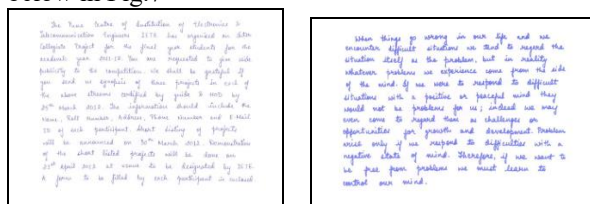 below in Fig.
The Pune Centre of Institution of Electronics &
Telecommunication Engineers IETE has organized an Inter
Collegiate Project for the final year students for the
academic year 2011-12. You are requested to give wide
publicity to the competition. We shall be grateful if
you send us synopsis of three projects in each of
the above streams certified by guide & HOD by
25th March 2012. The information should include the
Name, Roll number, Address, Phone Number and E-Mail
ID of each participant. Short listing of projects
will be announced on 30th March 2012. Demonstration
of the short listed projects will be done on
April 2012 at venue to be designated by IETE.
A form to be filled by each participant is enclosed.
When things go wrong in our life and we
encounter difficult situations we tend to regard the
situation itself as the problem, but in reality
whatever problems we experience come from the side
of the mind. If we were to respond to difficult
situations with a positive or peaceful mind they
would not be problems for us; indeed we may
even come to regard them as challenges or
opportunities for growth and development. Problems
arise only if we respond to difficulties with a
negative state of mind. Therefore, if we want to
be free from problems we must learn to
control our mind.